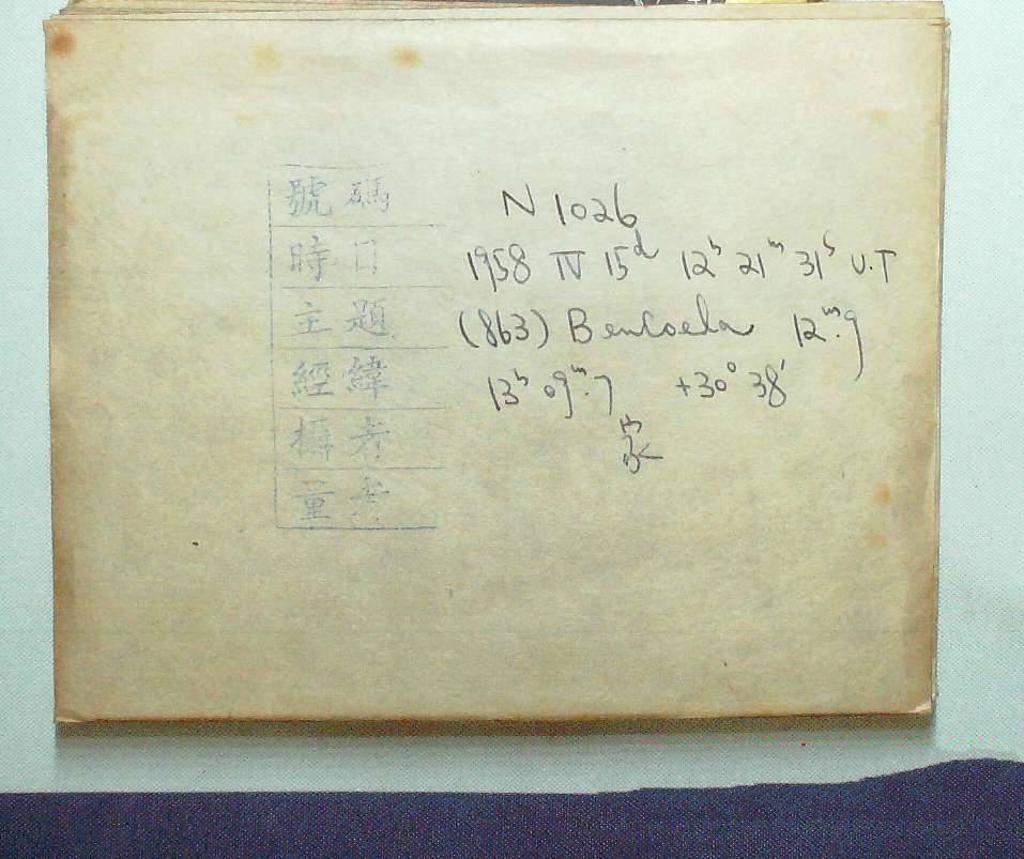 號碼 N 1026
時日 1958 IV 15d 12h 21m 31s U.T
主題 (863) Benkoela 12m.9
經緯 13h 09m.7 +30° 38'
攝者 家
量者